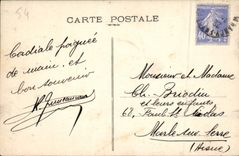 54
CARTE POSTALE
Cordiale poignée
de main, et
bon souvenir
Monsieur et Madame
Ch. Briodin
et leurs enfants
67, Faub. St Nicolas
Marle sur Serre
(Aisne)